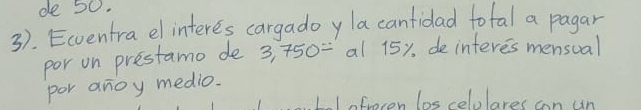 de 50.
3). Ecuentra el interés cargado y la cantidad total a pagar
por un préstamo de 3,750= al 15% de interés mensual
por año y medio.
ofrecen los celulares con un